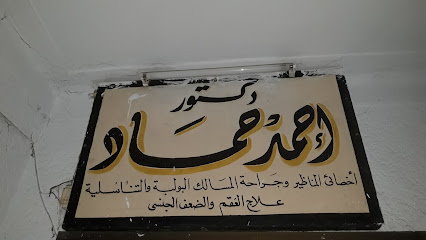 دكتور
أحمد حماد
أخصائى المناظير وجراحة المسالك البولية والتناسلية
علاج العقم والضعف الجنسى